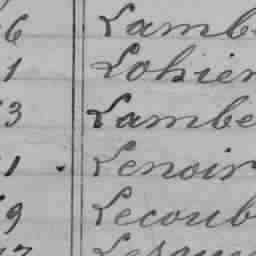 6 Lamb
1 Lohier
3 Lambe
1 . Lenoir
9 Lecoub